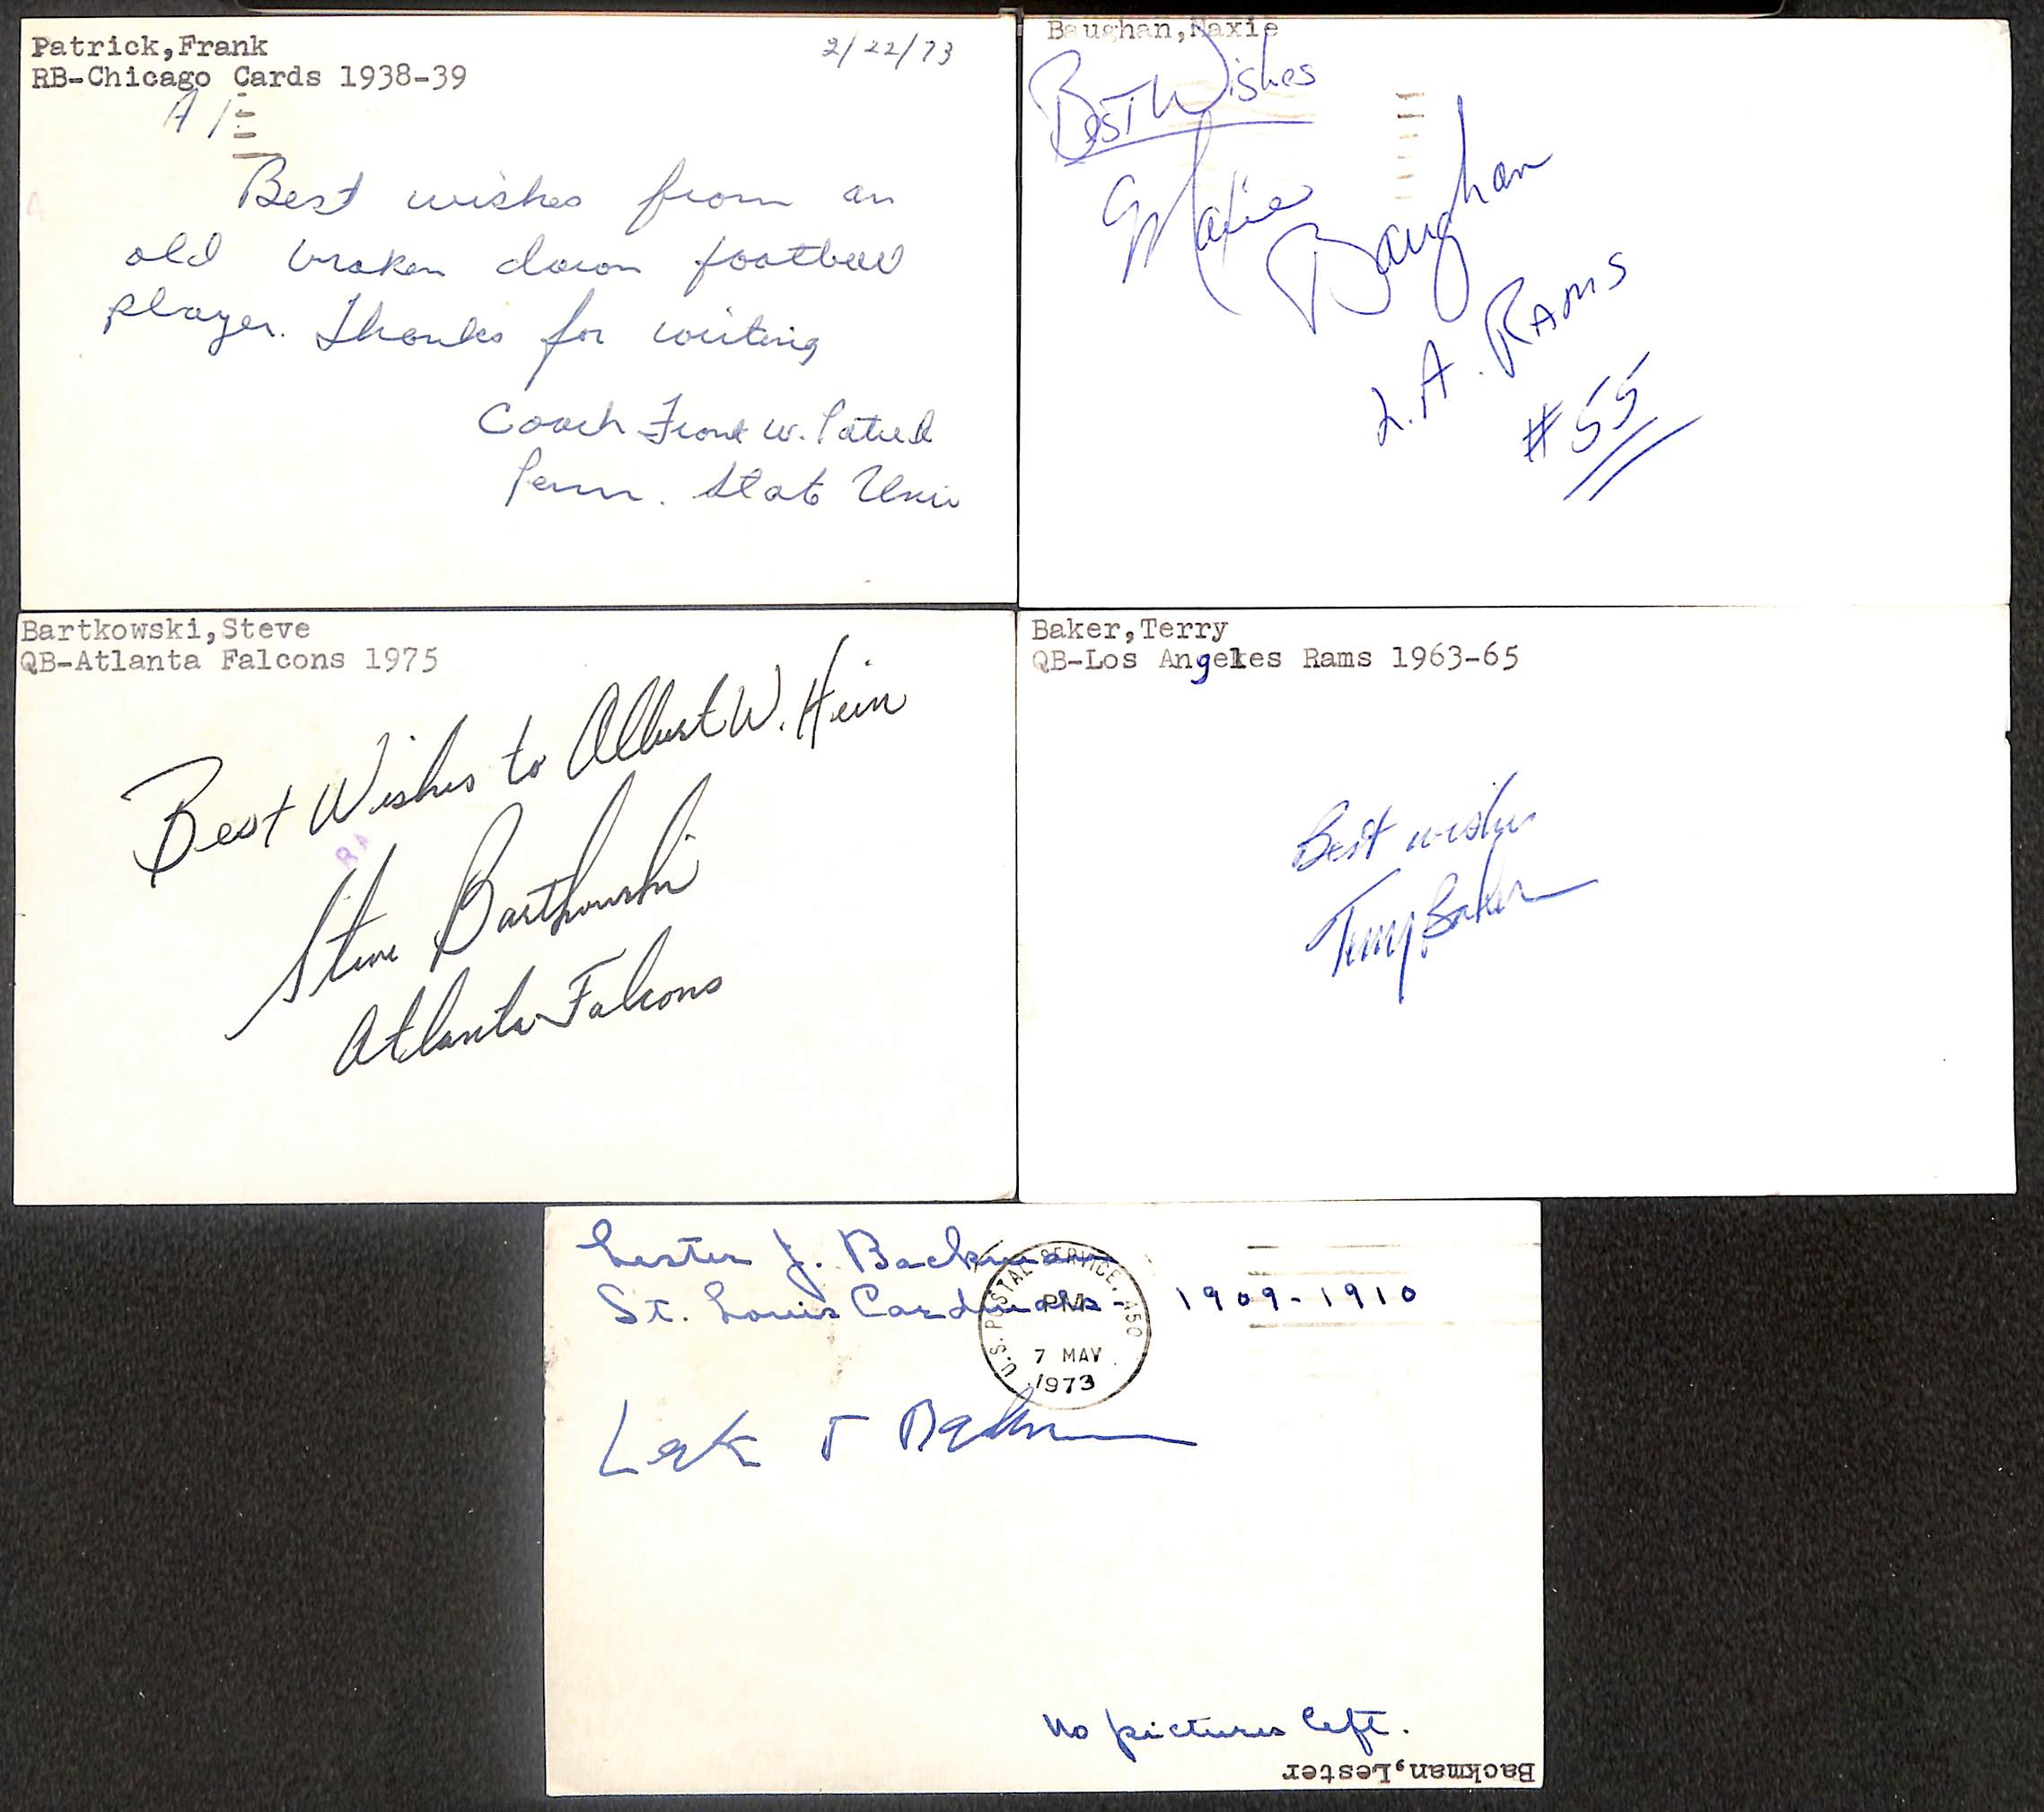 Patrick,Frank
2/22/73
RB-Chicago Cards 1938-39
Best wishes from an
old broken down football
player. Thanks for writing
Coach Frank W. Patrick
Penn. State Univ
Baughan,Maxie
Best Wishes
Maxie Baughan
L.A. RAMS
#55
Bartkowski,Steve
QB-Atlanta Falcons 1975
Best Wishes to Albert W. Hein
RA
Steve Bartkowski
Atlanta Falcons
Baker,Terry
QB-Los Angeles Rams 1963-65
Best wishes
Terry Baker
Lester J. Backman
St. Louis Cardinals - 1909-1910
U.S. POSTAL SERVICE, 450
PM
7 MAY
1973
Lester J Backman
No pictures left.
Backman,Lester